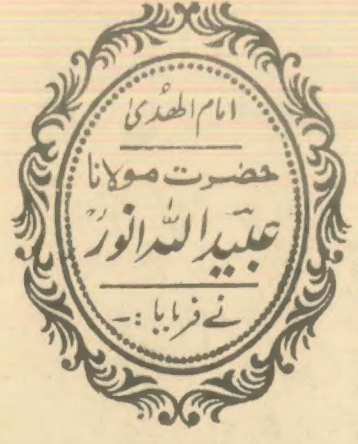 امام الھُدیٰ
حضرت مولانا
عبید اللہ انورؒ
نے فرمایا :-